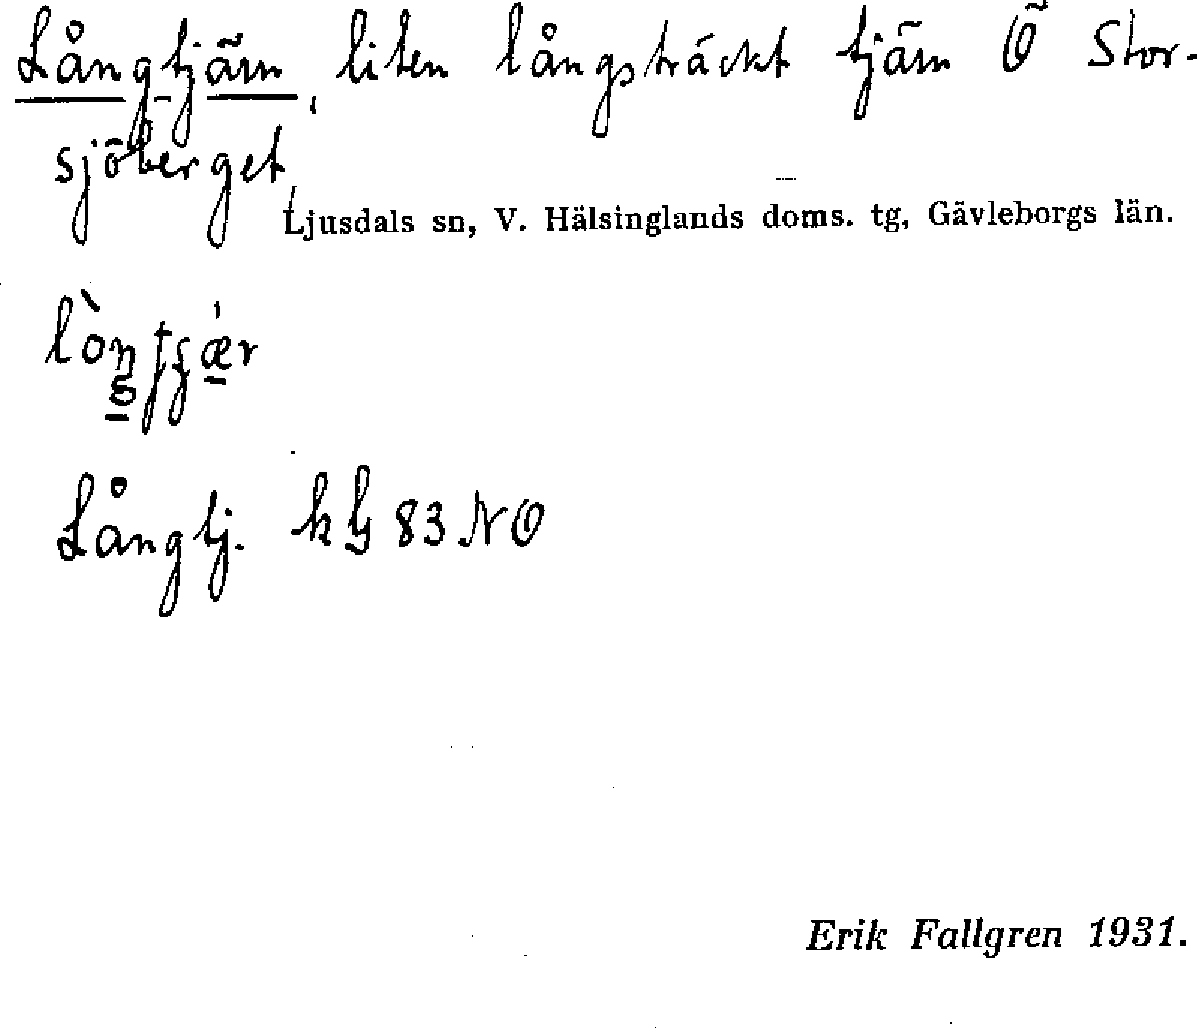 Långtjärn, liten långsträckt tjärn Ö Stor-
sjöberget
Ljusdals sn, V. Hälsinglands doms. tg, Gävleborgs län.
Långtj. hG 83 NO
Erik Fallgren 1931.